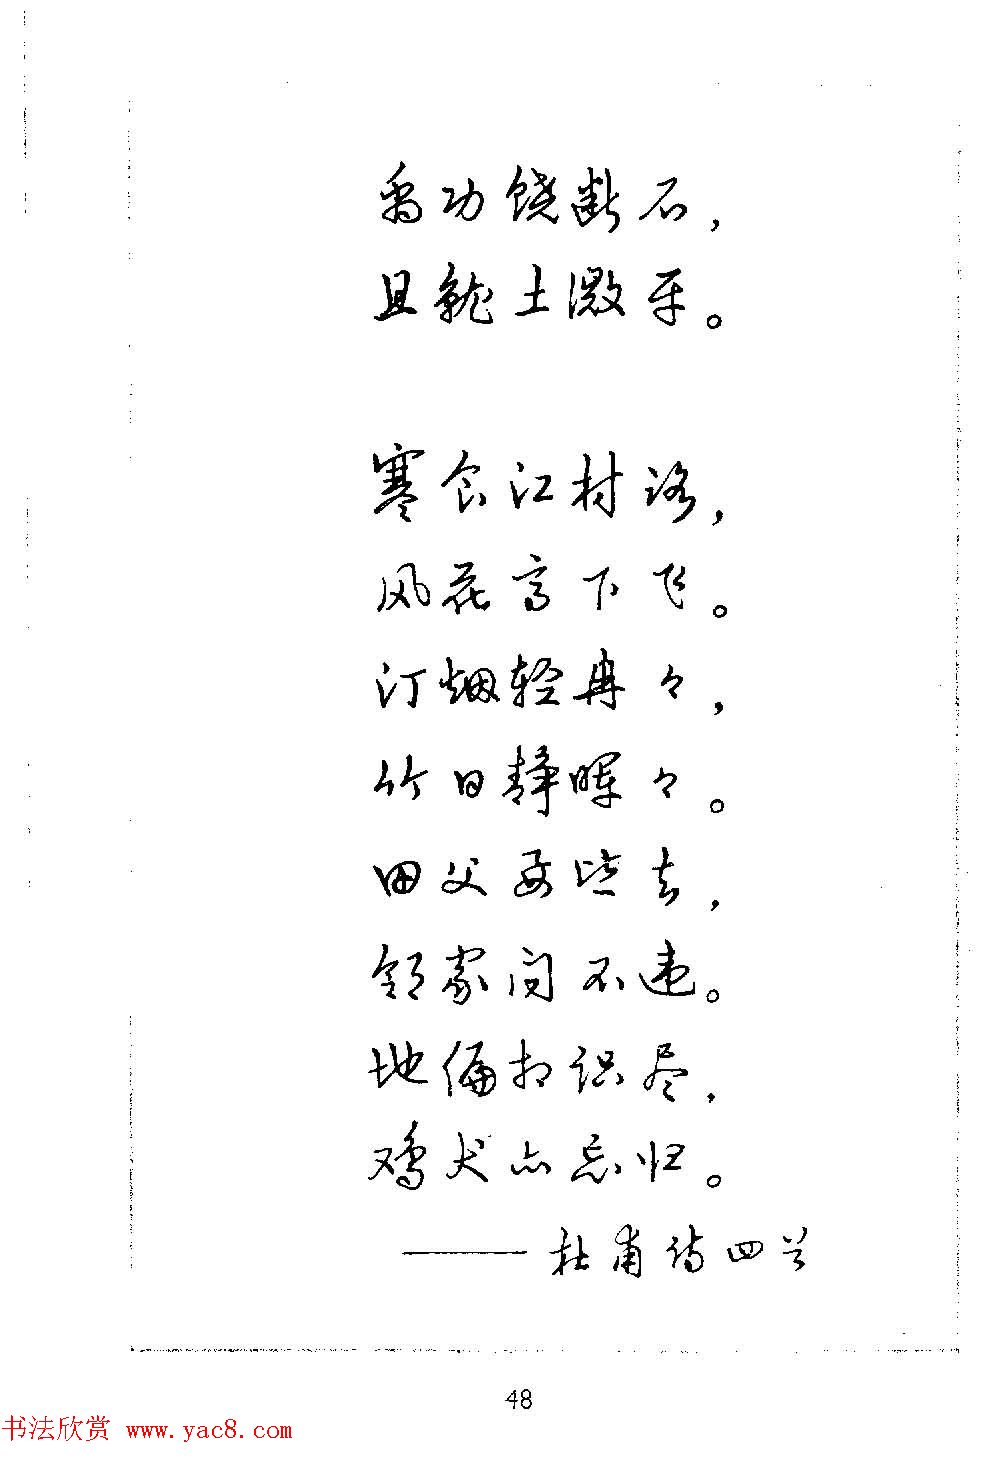 禹功饶断石，
且就土微平。
寒食江村路，
风花高下飞。
汀烟轻冉々，
竹日静晖々。
田父要皆去，
邻家问不违。
地偏相识尽，
鸡犬亦忘归。
——杜甫诗四首
48
书法欣赏 www.yac8.com